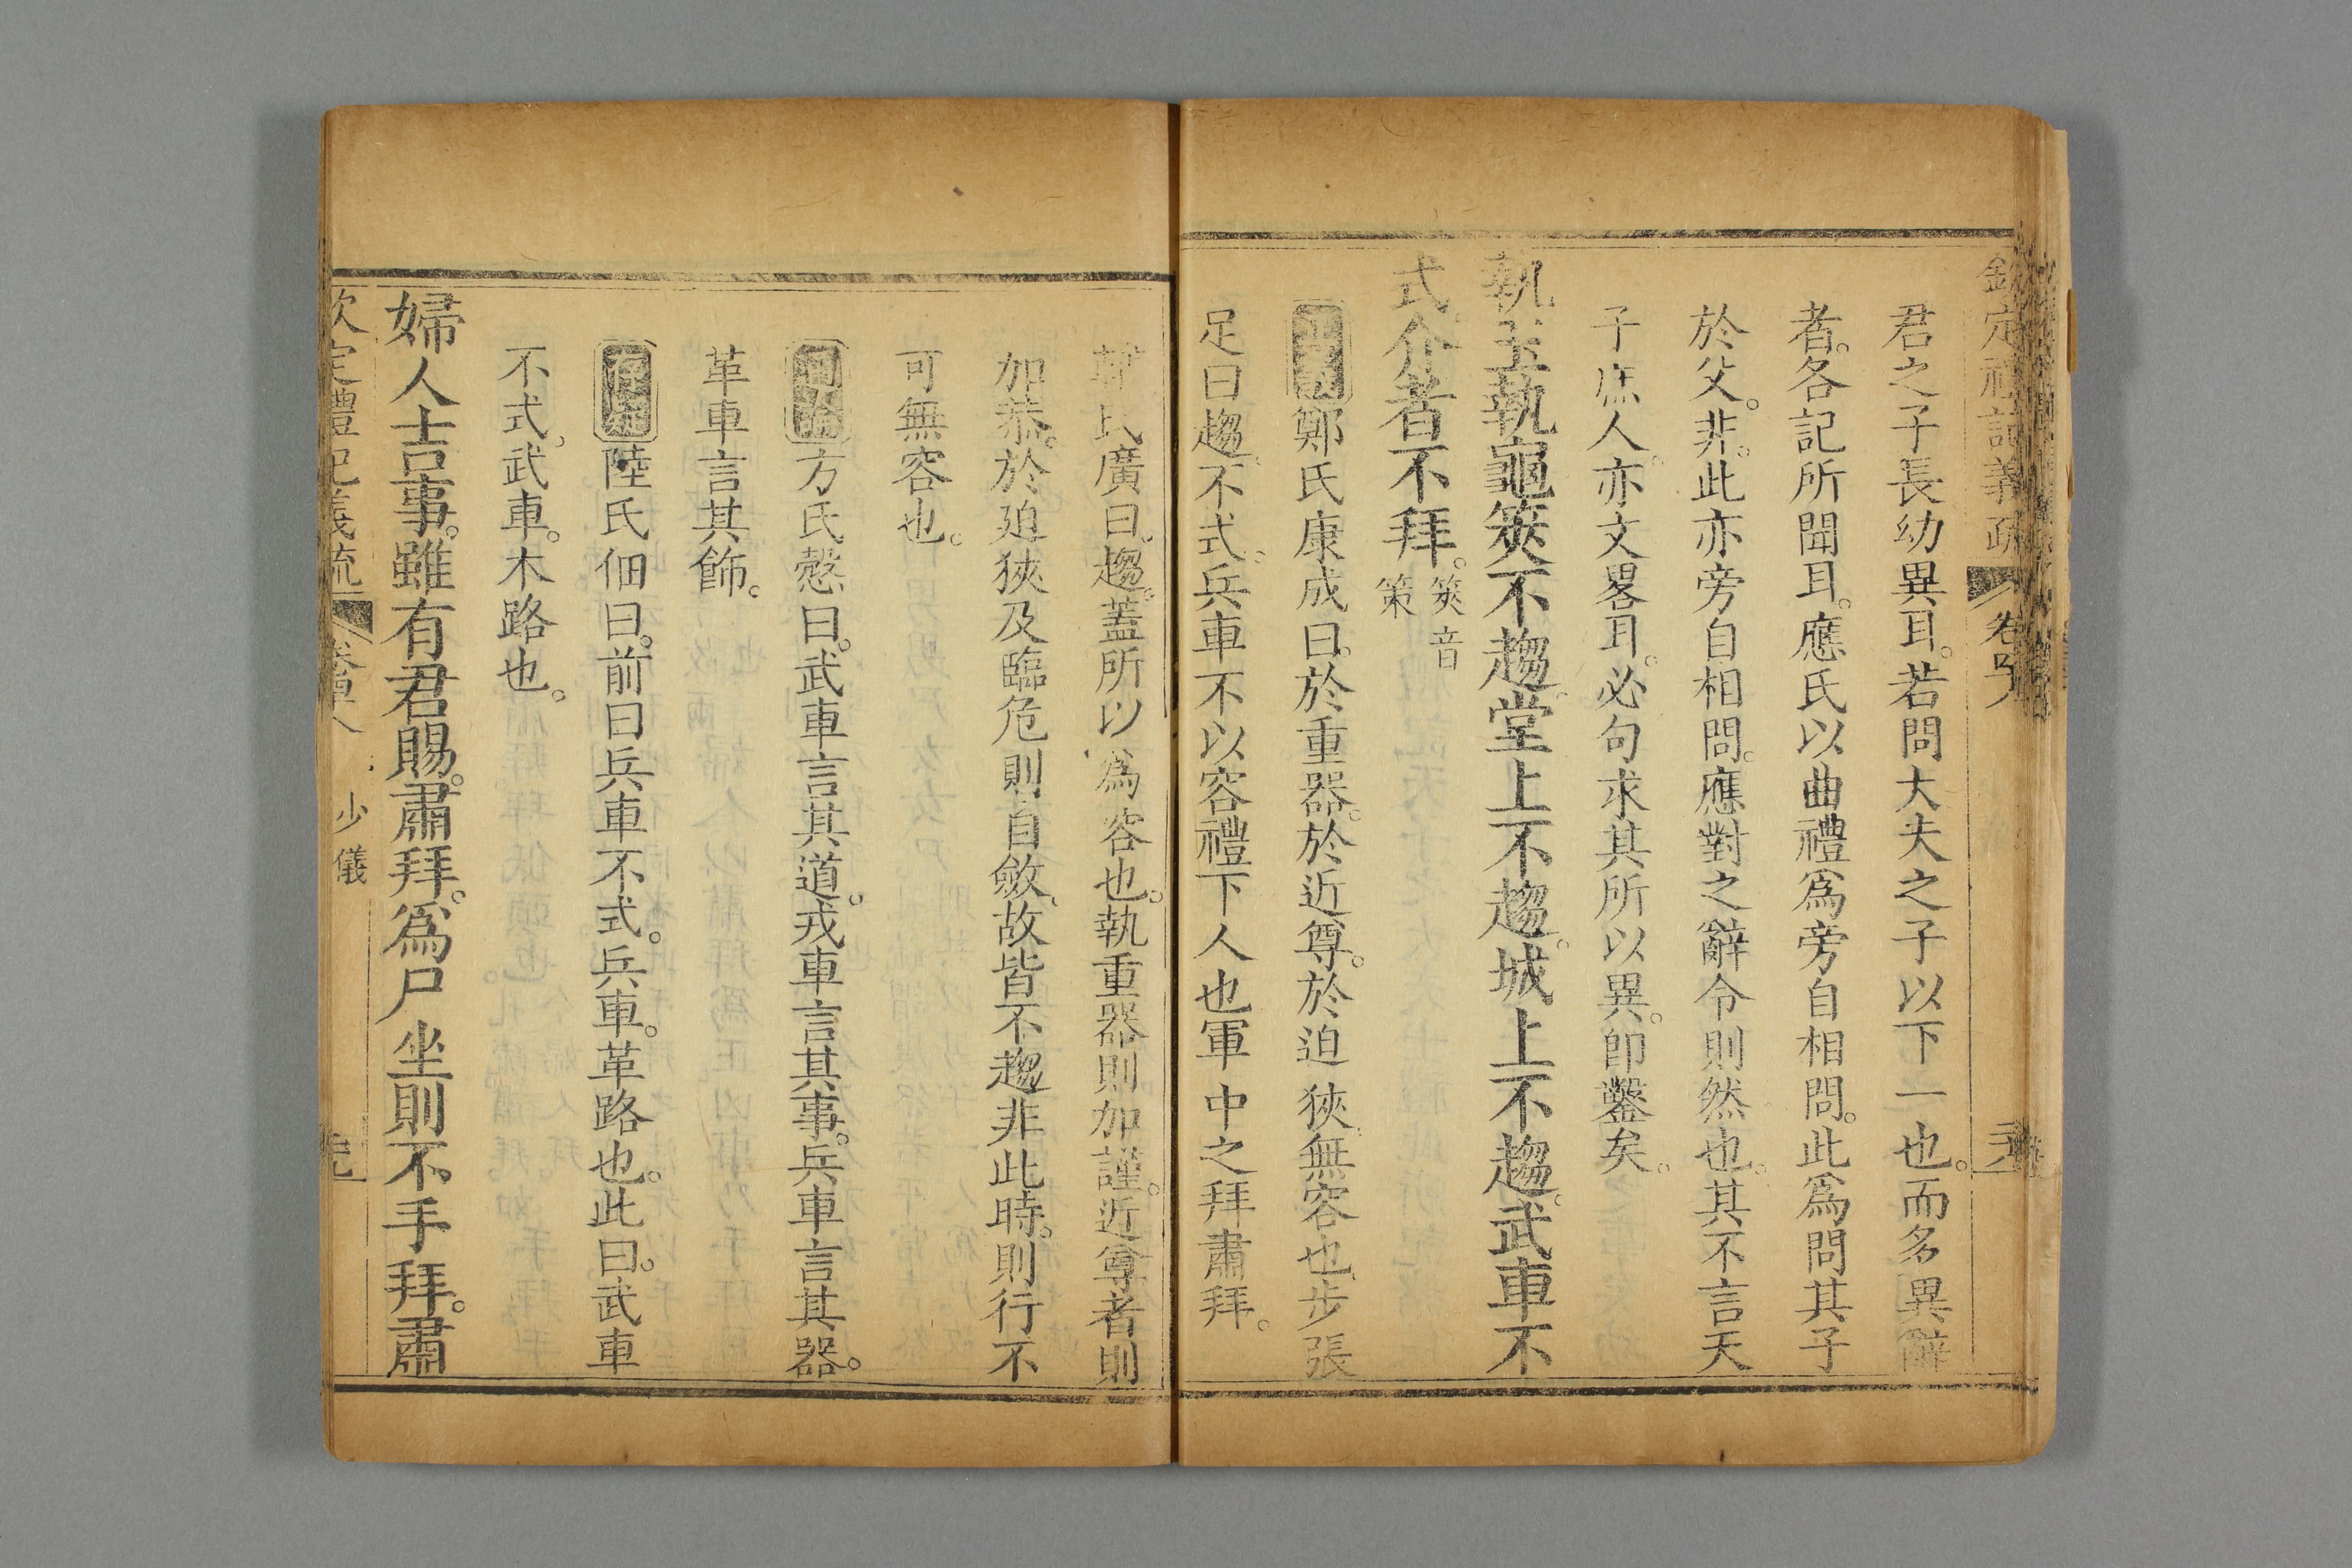 欽定禮記義疏 卷
君之子長幼異耳。若問大夫之子以下一也。而多異辭
者。各記所聞耳。應氏以曲禮爲旁自相問。此爲問其子
於父。非。此亦旁自相問。應對之辭令則然也。其不言天
子庶人。亦文畧耳。必句求其所以異。卽鑿矣。
執玉執龜筴不趨。堂上不趨。城上不趨。武車不
式。介者不拜。筴音
策
鄭氏康成曰。於重器。於近尊。於迫狹。無容也。步張
足曰趨。不式。兵車不以容禮下人也。軍中之拜肅拜。
氏廣曰。趨。蓋所以爲容也。執重器則加謹。近尊者則
加恭。於迫狹及臨危則自斂。故皆不趨。非此時。則行不
可無容也。
方氏慤曰。武車言其道。戎車言其事。兵車言其器。
革車言其飾。
陸氏佃曰。前曰兵車不式。兵車。革路也。此曰。武車
不式。武車。木路也。
婦人吉事。雖有君賜。肅拜。爲尸坐則不手拜。肅
欽定禮記義疏 少儀